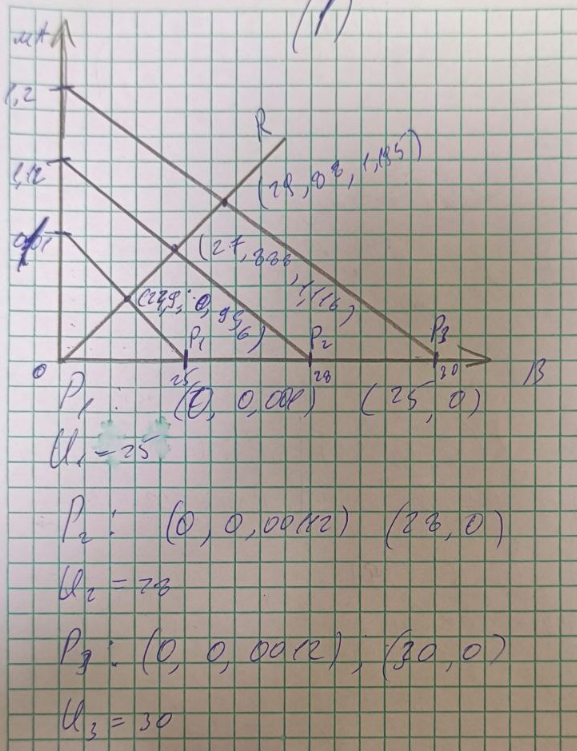 (1)
мА
1,2
R
(29,88, 1,195)
1,12
(27,888, 1,116)
(24,9; 0,996)
P₁
P₂
P₃
0
25
28
30
В
P₁: (0, 0,001) (25, 0)
U₁ = 25
P₂: (0, 0,00112) (28, 0)
U₂ = 28
P₃: (0, 0,0012), (30, 0)
U₃ = 30